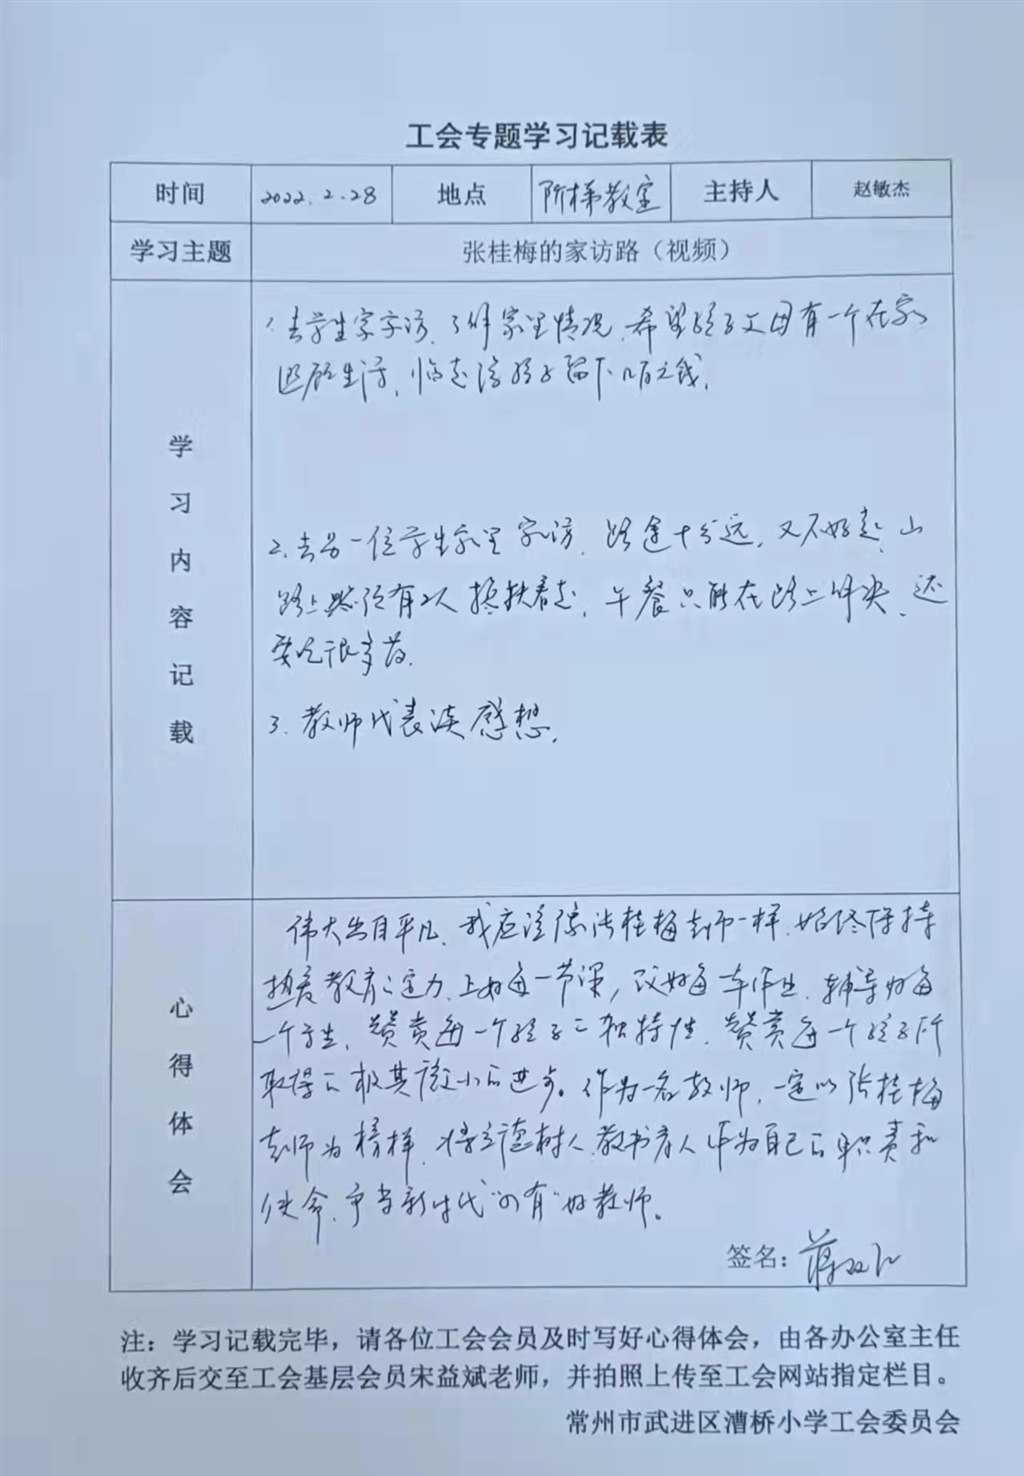 工会专题学习记载表
时间 2022.2.28 地点 阶梯教室 主持人 赵敏杰
学习主题 张桂梅的家访路（视频）
学习内容记载
1.去学生家家访，了解家里情况，希望孩子父母有一个在家
照顾生活，临走给孩子留下几百元钱。
2.去另一位学生家里家访，路途十分远，又不好走，山
路上必须有2人搀扶着走，午餐只能在路上解决，还
要吃很多药。
3.教师代表谈感想。
心得体会
伟大出自平凡，我应该像张桂梅老师一样，始终保持
热爱教育之定力，上好每一节课，改好每一本作业，辅导好每
一个学生，赞赏每一个孩子的独特性，赞赏每一个孩子所
取得的极其微小的进步。作为一名教师，一定以张桂梅
老师为榜样，将立德树人、教书育人作为自己的职责和
使命，争当新时代“四有”好教师。
签名：蒋
注：学习记载完毕，请各位工会会员及时写好心得体会，由各办公室主任
收齐后交至工会基层会员宋益斌老师，并拍照上传至工会网站指定栏目。
常州市武进区漕桥小学工会委员会